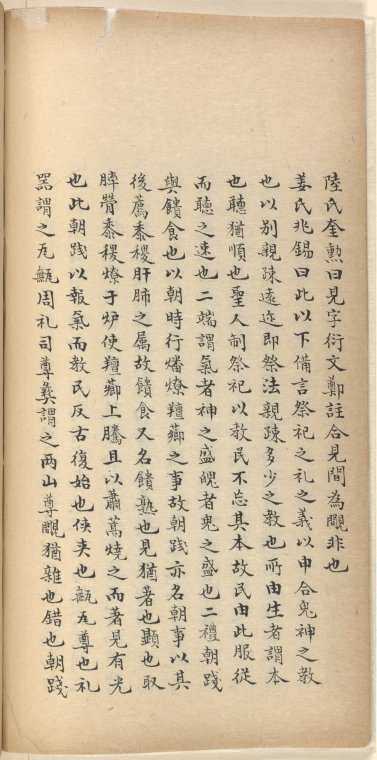 陸氏奎勲曰見字衍文鄭註合見間為覵非也
姜氏兆錫曰此以下備言祭祀之礼之義以申合鬼神之教
也以别親疎遠迩即祭法親疎多少之教也所由生者謂本
也聽猶順也聖人制祭祀以教民不忘其本故民由此服從
而聽之速也二端謂氣者神之盛魄者鬼之盛也二禮朝踐
與饋食也以朝時行燔燎羶薌之事故朝践亦名朝事以其
後薦黍稷肝肺之属故饋食又名饋熟也見猶著也顯也取
膟膋黍稷燎于炉使羶薌上騰且以蕭蒿燒之而著見有光
也此朝践以報氣而教民反古復始也侠夹也甒瓦尊也礼
器謂之瓦甒周礼司尊彝謂之两山尊覵猶雜也錯也朝踐